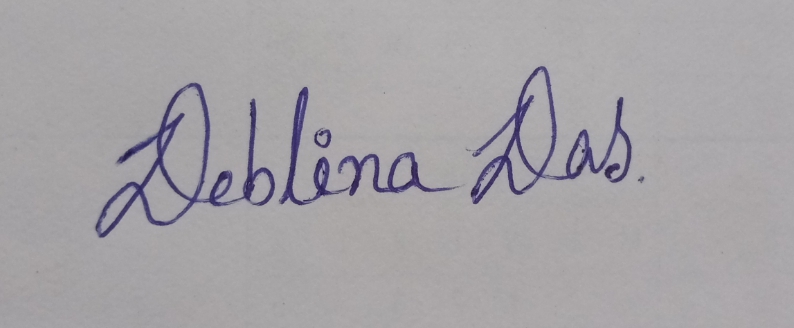 Deblina Das.